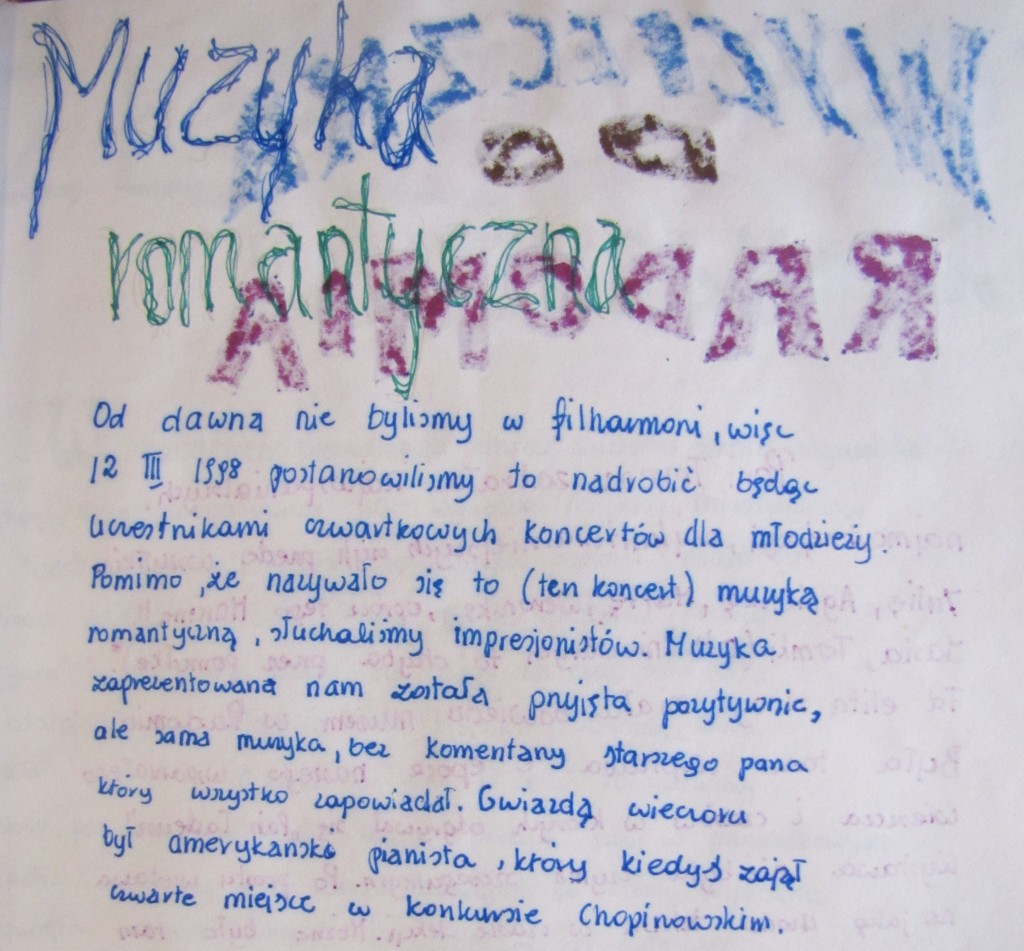 Muzyka
romantyczna
Od dawna nie byliśmy w filharmoni, więc
12 III 1998 postanowiliśmy to nadrobić będąc
uczestnikami czwartkowych koncertów dla młodzieży.
Pomimo, że nazywało się to (ten koncert) muzyką
romantyczną, słuchaliśmy impresjonistów. Muzyka
zaprezentowana nam została przyjęta pozytywnie,
ale sama muzyka, bez komentarzy starszego pana
który wszystko zapowiadał. Gwiazdą wieczoru
był amerykański pianista, który kiedyś zajął
czwarte miejsce w konkursie Chopinowskim.